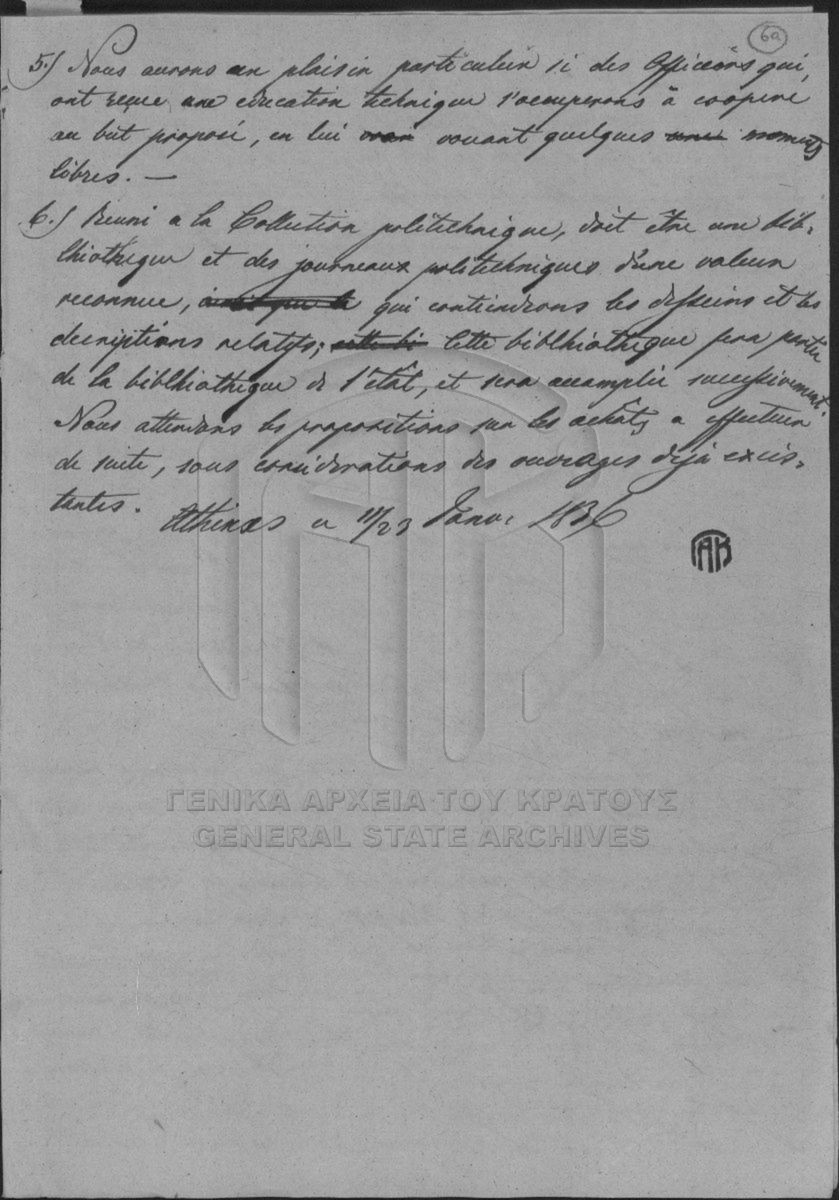 6a
5.) Nous aurons un plaisir particulier si des Officiers qui,
ont reçue une education technique s'occuperons à cooperé
au but proposé, en lui vouant quelques moments
libres. —
6.) Reuni a la Collection politechnique, doit être une bib-
lhiotheque et des journeaux politechniques d'une valeur
reconnue, qui contiendrons les desseins et les
descriptions relatifs; Cette biblhiotheque fera partie
de la biblhiotheque de l'êtât, et sera accomplie successivement.
Nous attendons les propositions sur les achâts a effectuer
de suite, sous considerations des ouvrages dejà excis-
tantes.
Athenes a 11/23 Janv. 1836
ΓΑΚ
ΓΕΝΙΚΑ ΑΡΧΕΙΑ ΤΟΥ ΚΡΑΤΟΥΣ
GENERAL STATE ARCHIVES